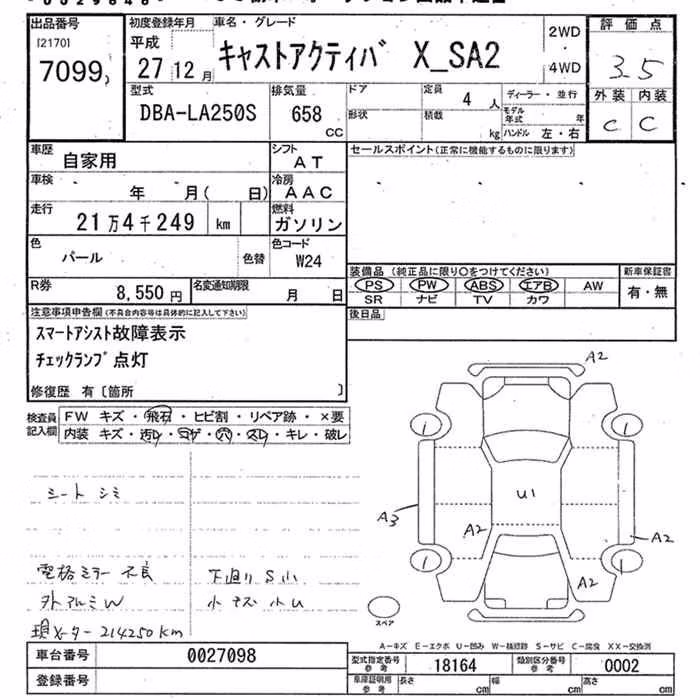 出品番号
[2170]
7099
初度登録年月
平成
27 12 月
車名・グレード
キャストアクティバ X_SA2
2WD
4WD
評価点
3.5
外装 内装
C C
型式
DBA-LA250S
排気量
658
CC
ドア
形状
定員
4 人
積載
kg
ディーラー・並行
モデル年式 年
ハンドル 左・右
車歴
自家用
シフト
AT
車検
年 月( 日)
冷房
AAC
走行
21万4千249 km
燃料
ガソリン
色
パール
色替
色コード
W24
R券
8,550 円
名変通知期限
月 日
セールスポイント(正常に機能するものに限ります)
装備品 (純正品に限り○をつけてください)
PS PW ABS エアB AW
SR ナビ TV カワ
新車保証書
有・無
後日品
注意事項申告欄(不具合内容等は具体的に記入して下さい)
スマートアシスト故障表示
チェックランプ点灯
修復歴 有〔箇所 〕
検査員記入欄
FW キズ・飛石・ヒビ割・リペア跡・×要
内装 キズ・汚レ・コゲ・穴・スレ・キレ・破レ
シート シミ
電格ミラー不良
外アルミW
現メーター 214250km
下廻りS小
小キズ小U
A2
1
1
U1
A3
A2
A2
A2
1
1
スペア
A-キズ E-エクボ U-凹み W-補修跡 S-サビ C-腐食 XX-交換済
車台番号
0027098
登録番号
型式指定番号
参考
18164
類別区分番号
参考
0002
車庫証明用
参考
長さ cm
幅 cm
高さ cm